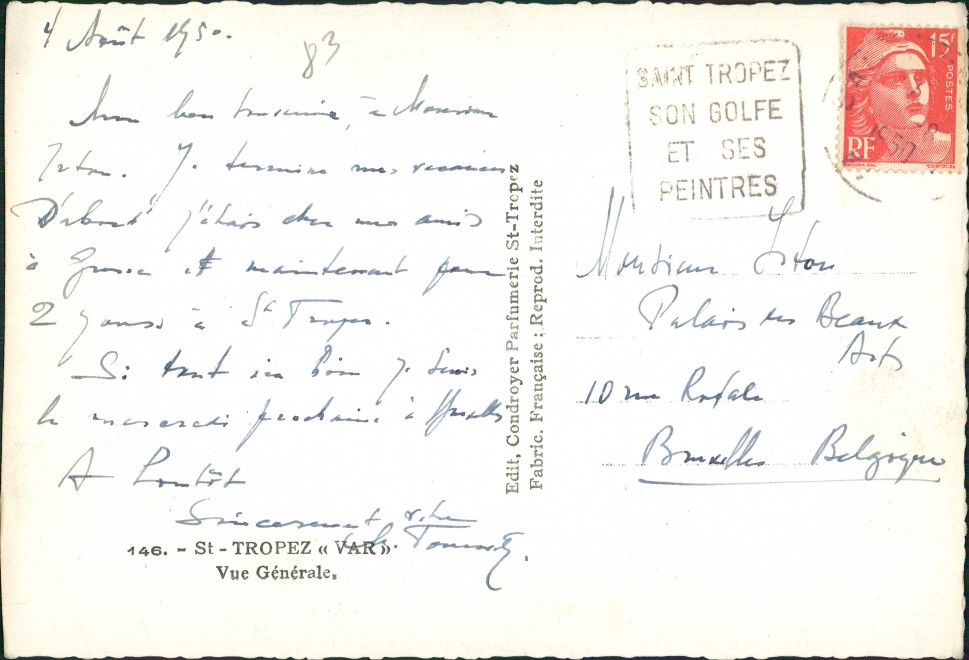 4 Août 1950.
83
Mon bon souvenir, à Monsieur
Je termine mes vacances
D'abord j'étais chez mes amis
à Grasse et maintenant pour
2 jours à St Tropez.
Si tout va bien je serai
le mercredi prochaine à Bruxelles
A bientôt
Sincèrement votre
146. - St - TROPEZ « VAR ».
Vue Générale.
Edit, Condroyer Parfumerie St-Tropez
Fabric. Française ; Reprod. Interdite
SAINT TROPEZ
SON GOLFE
ET SES
PEINTRES
15F
POSTES
RF
Monsieur
Palais des Beaux
Arts
10 rue Royale
Bruxelles Belgique